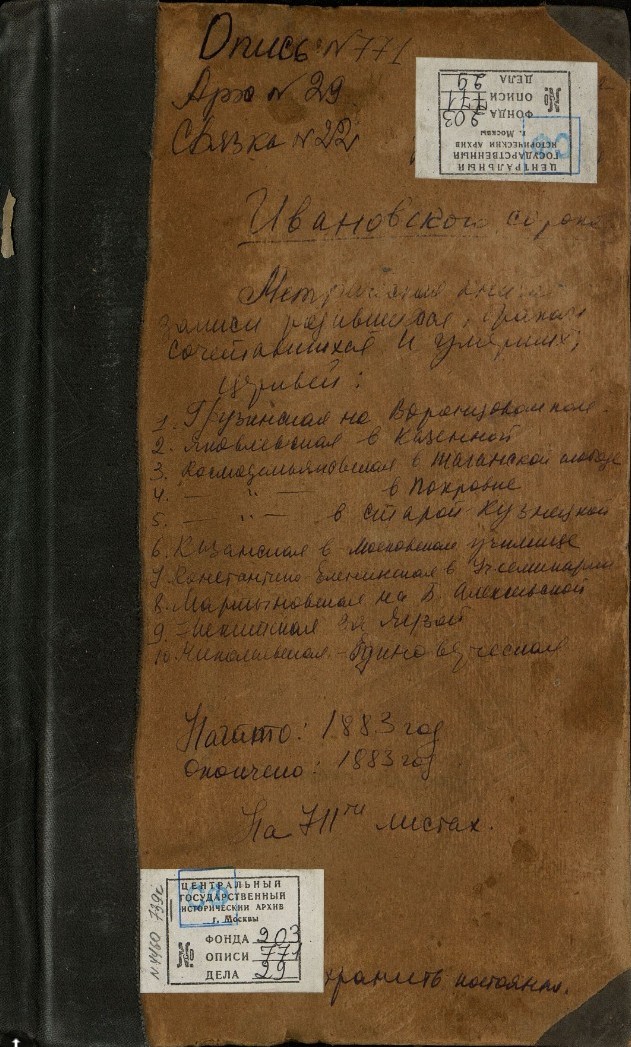 Опись № 771
Арх № 29
Связка № 22
ЦЕНТРАЛЬНЫЙ
ГОСУДАРСТВЕННЫЙ
ИСТОРИЧЕСКИЙ АРХИВ
г. Москвы
ФОНДА 203
ОПИСИ 771
ДЕЛА 29
Ивановского сорока
Метрическая книга
записи родившихся, браком
сочетавшихся и умерших,
церквей:
1. Грузинская на Воронцовом поле.
2. Яковлевская в Казенной
3. Космодемьяновская в Таганской слободе
4. — " — в Покровке
5. — " — в старой Кузнецкой
6. Казанская в Московском училище
7. Константино Еленинская в Уч. семинарии
8. Мартыновская на Б. Алексеевской
9. за Яузой
10. Николаевская - Единоверческая
Начато: 1883 год
Окончено: 1883 год
На 711ти листах.
ЦЕНТРАЛЬНЫЙ
ГОСУДАРСТВЕННЫЙ
ИСТОРИЧЕСКИЙ АРХИВ
г. Москвы
ФОНДА 203
ОПИСИ 771
ДЕЛА 29
хранить постоянно.